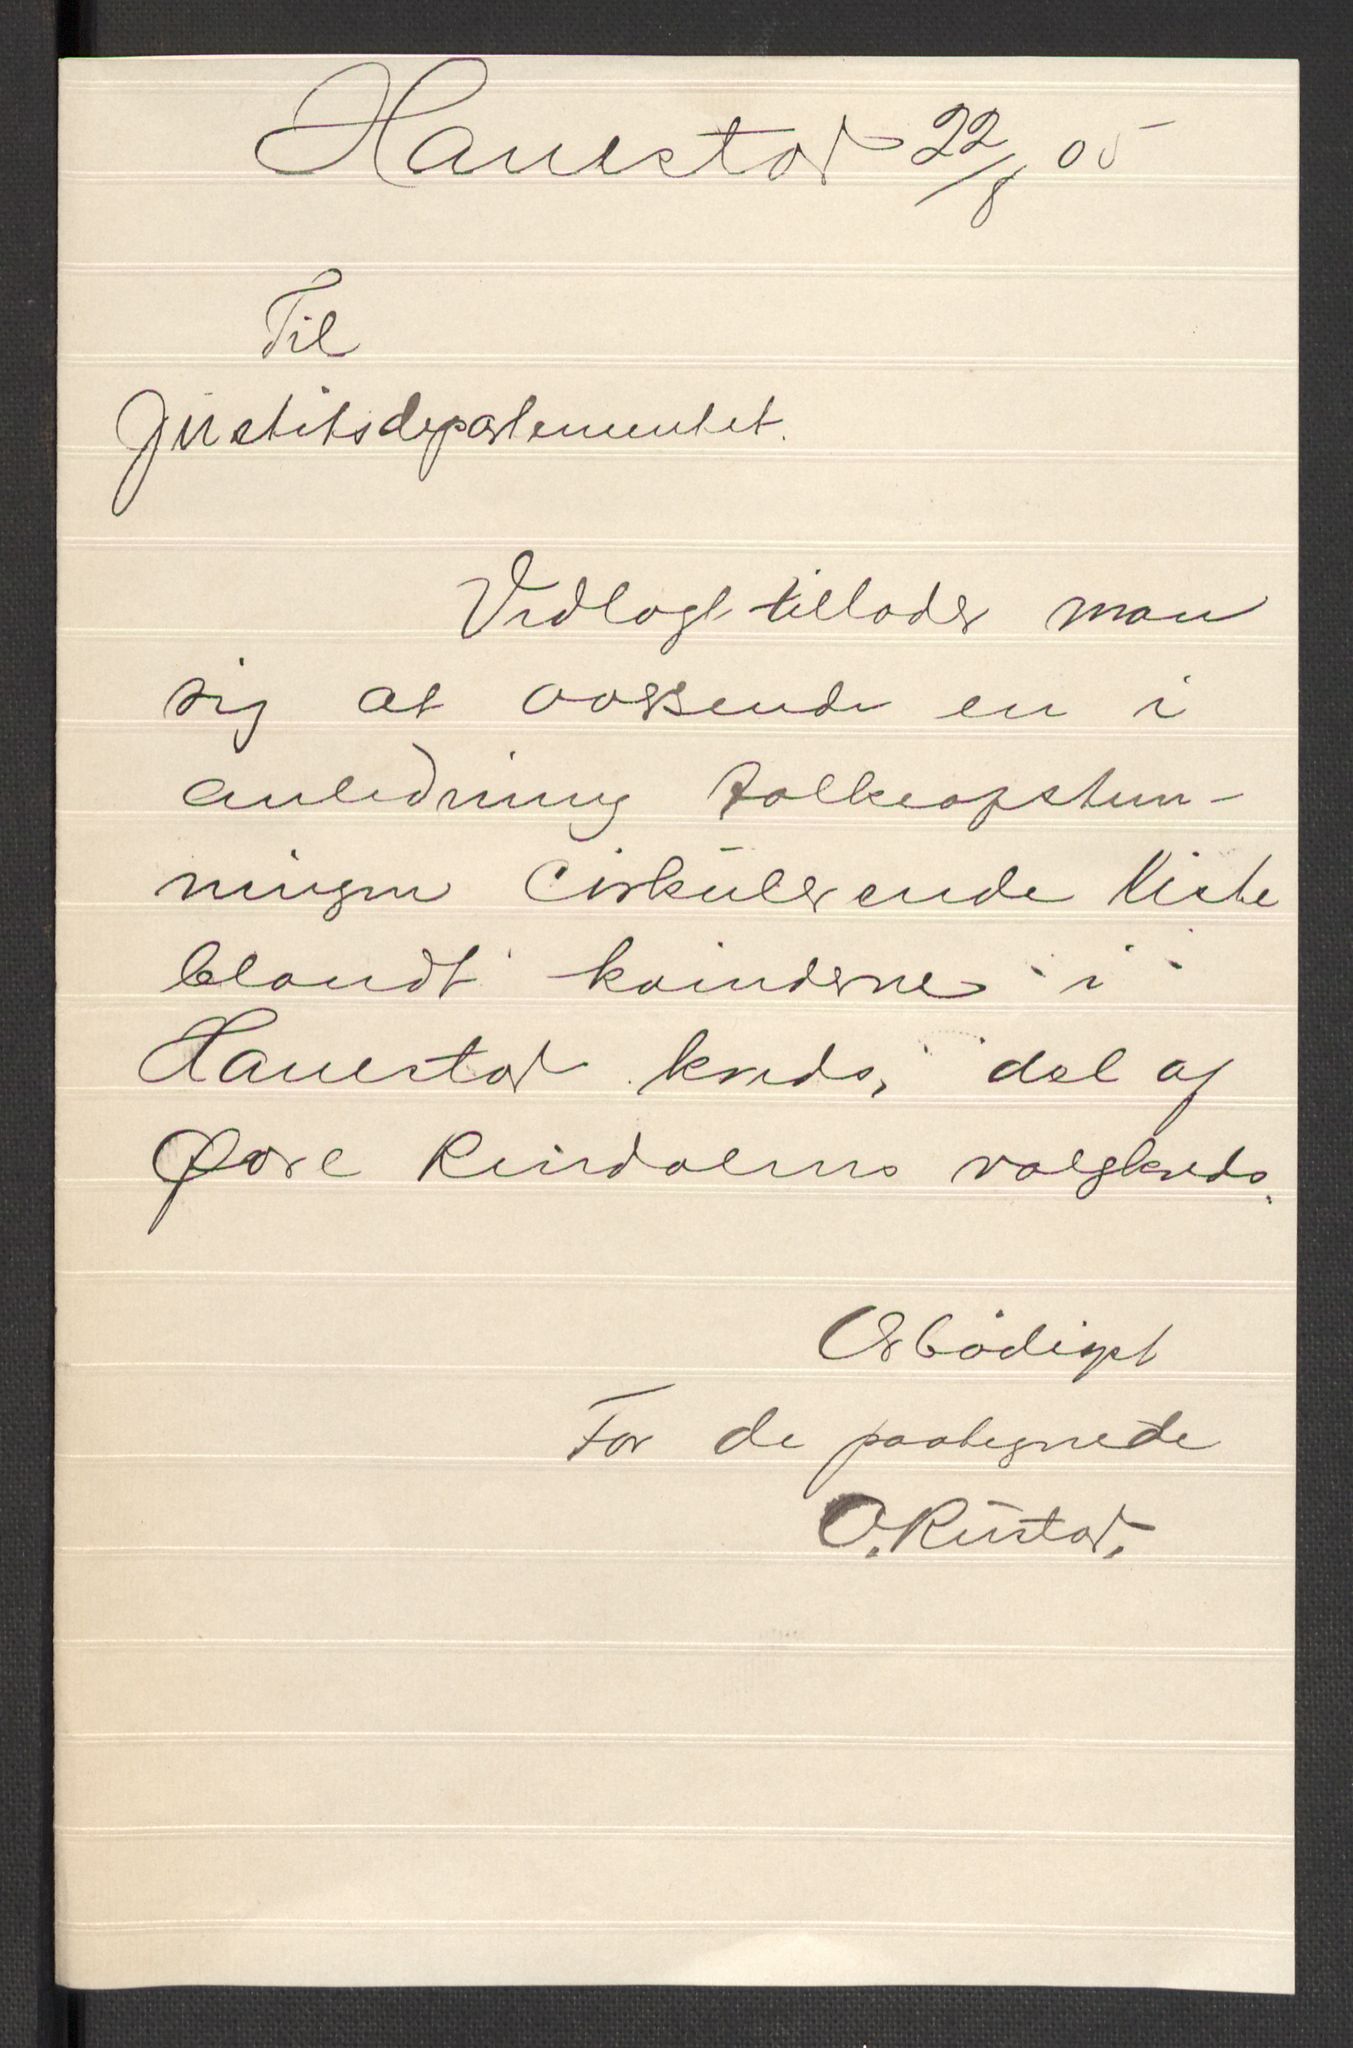 Hanestad 22/8 05
Til
Justitsdepartementet.
Vedlagt tillader man
sig at oversende en i
anledning folkeafstem-
ningen Cirkulerende liste
blandt kvinderne i
Hanestad kreds, del af
Øvre Rendalens valgkreds.
Ærbødigst
For de paategnede
O. Rustad.